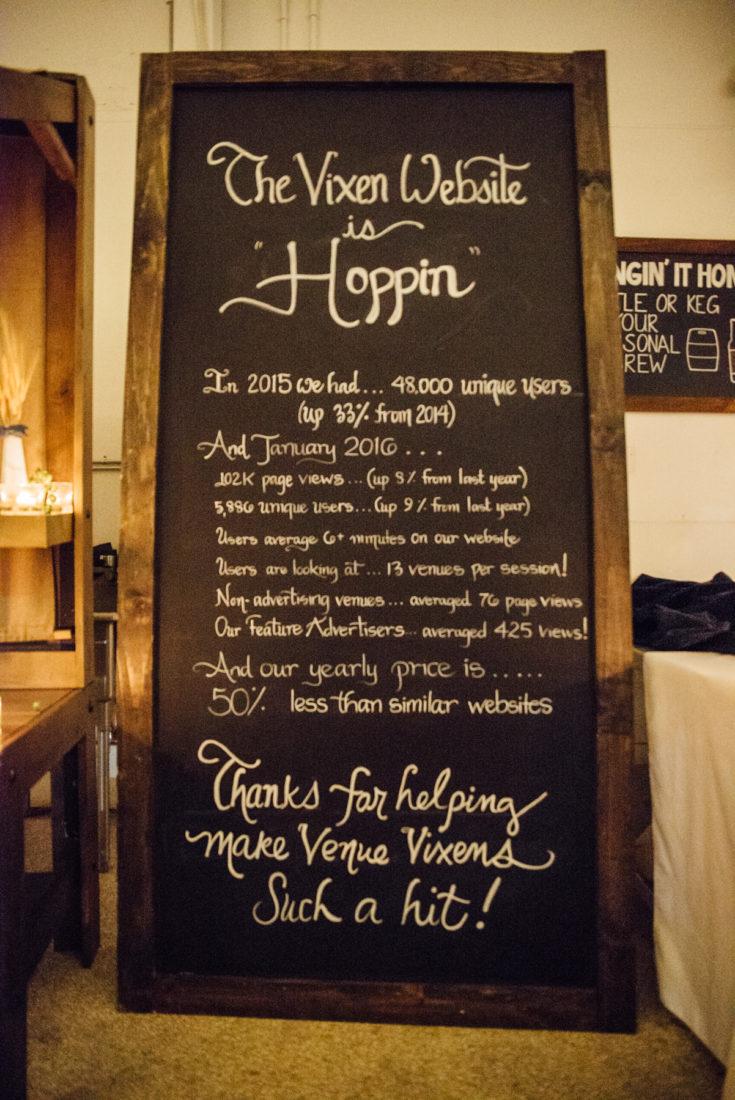 The Vixen Website
is
"Hoppin"
In 2015 we had... 48,000 unique users
(up 33% from 2014)
And January 2016 ...
102K page views... (up 8% from last year)
5,886 unique users...(up 9% from last year)
Users average 6+ minutes on our website
Users are looking at... 13 venues per session!
Non-advertising venues... averaged 76 page views
Our Feature Advertisers... averaged 425 views!
And our yearly price is .....
50% less than similar websites
Thanks for helping
make Venue Vixens
Such a hit!
NGIN' IT HOM
TLE OR KEG
YOUR
SONAL
REW